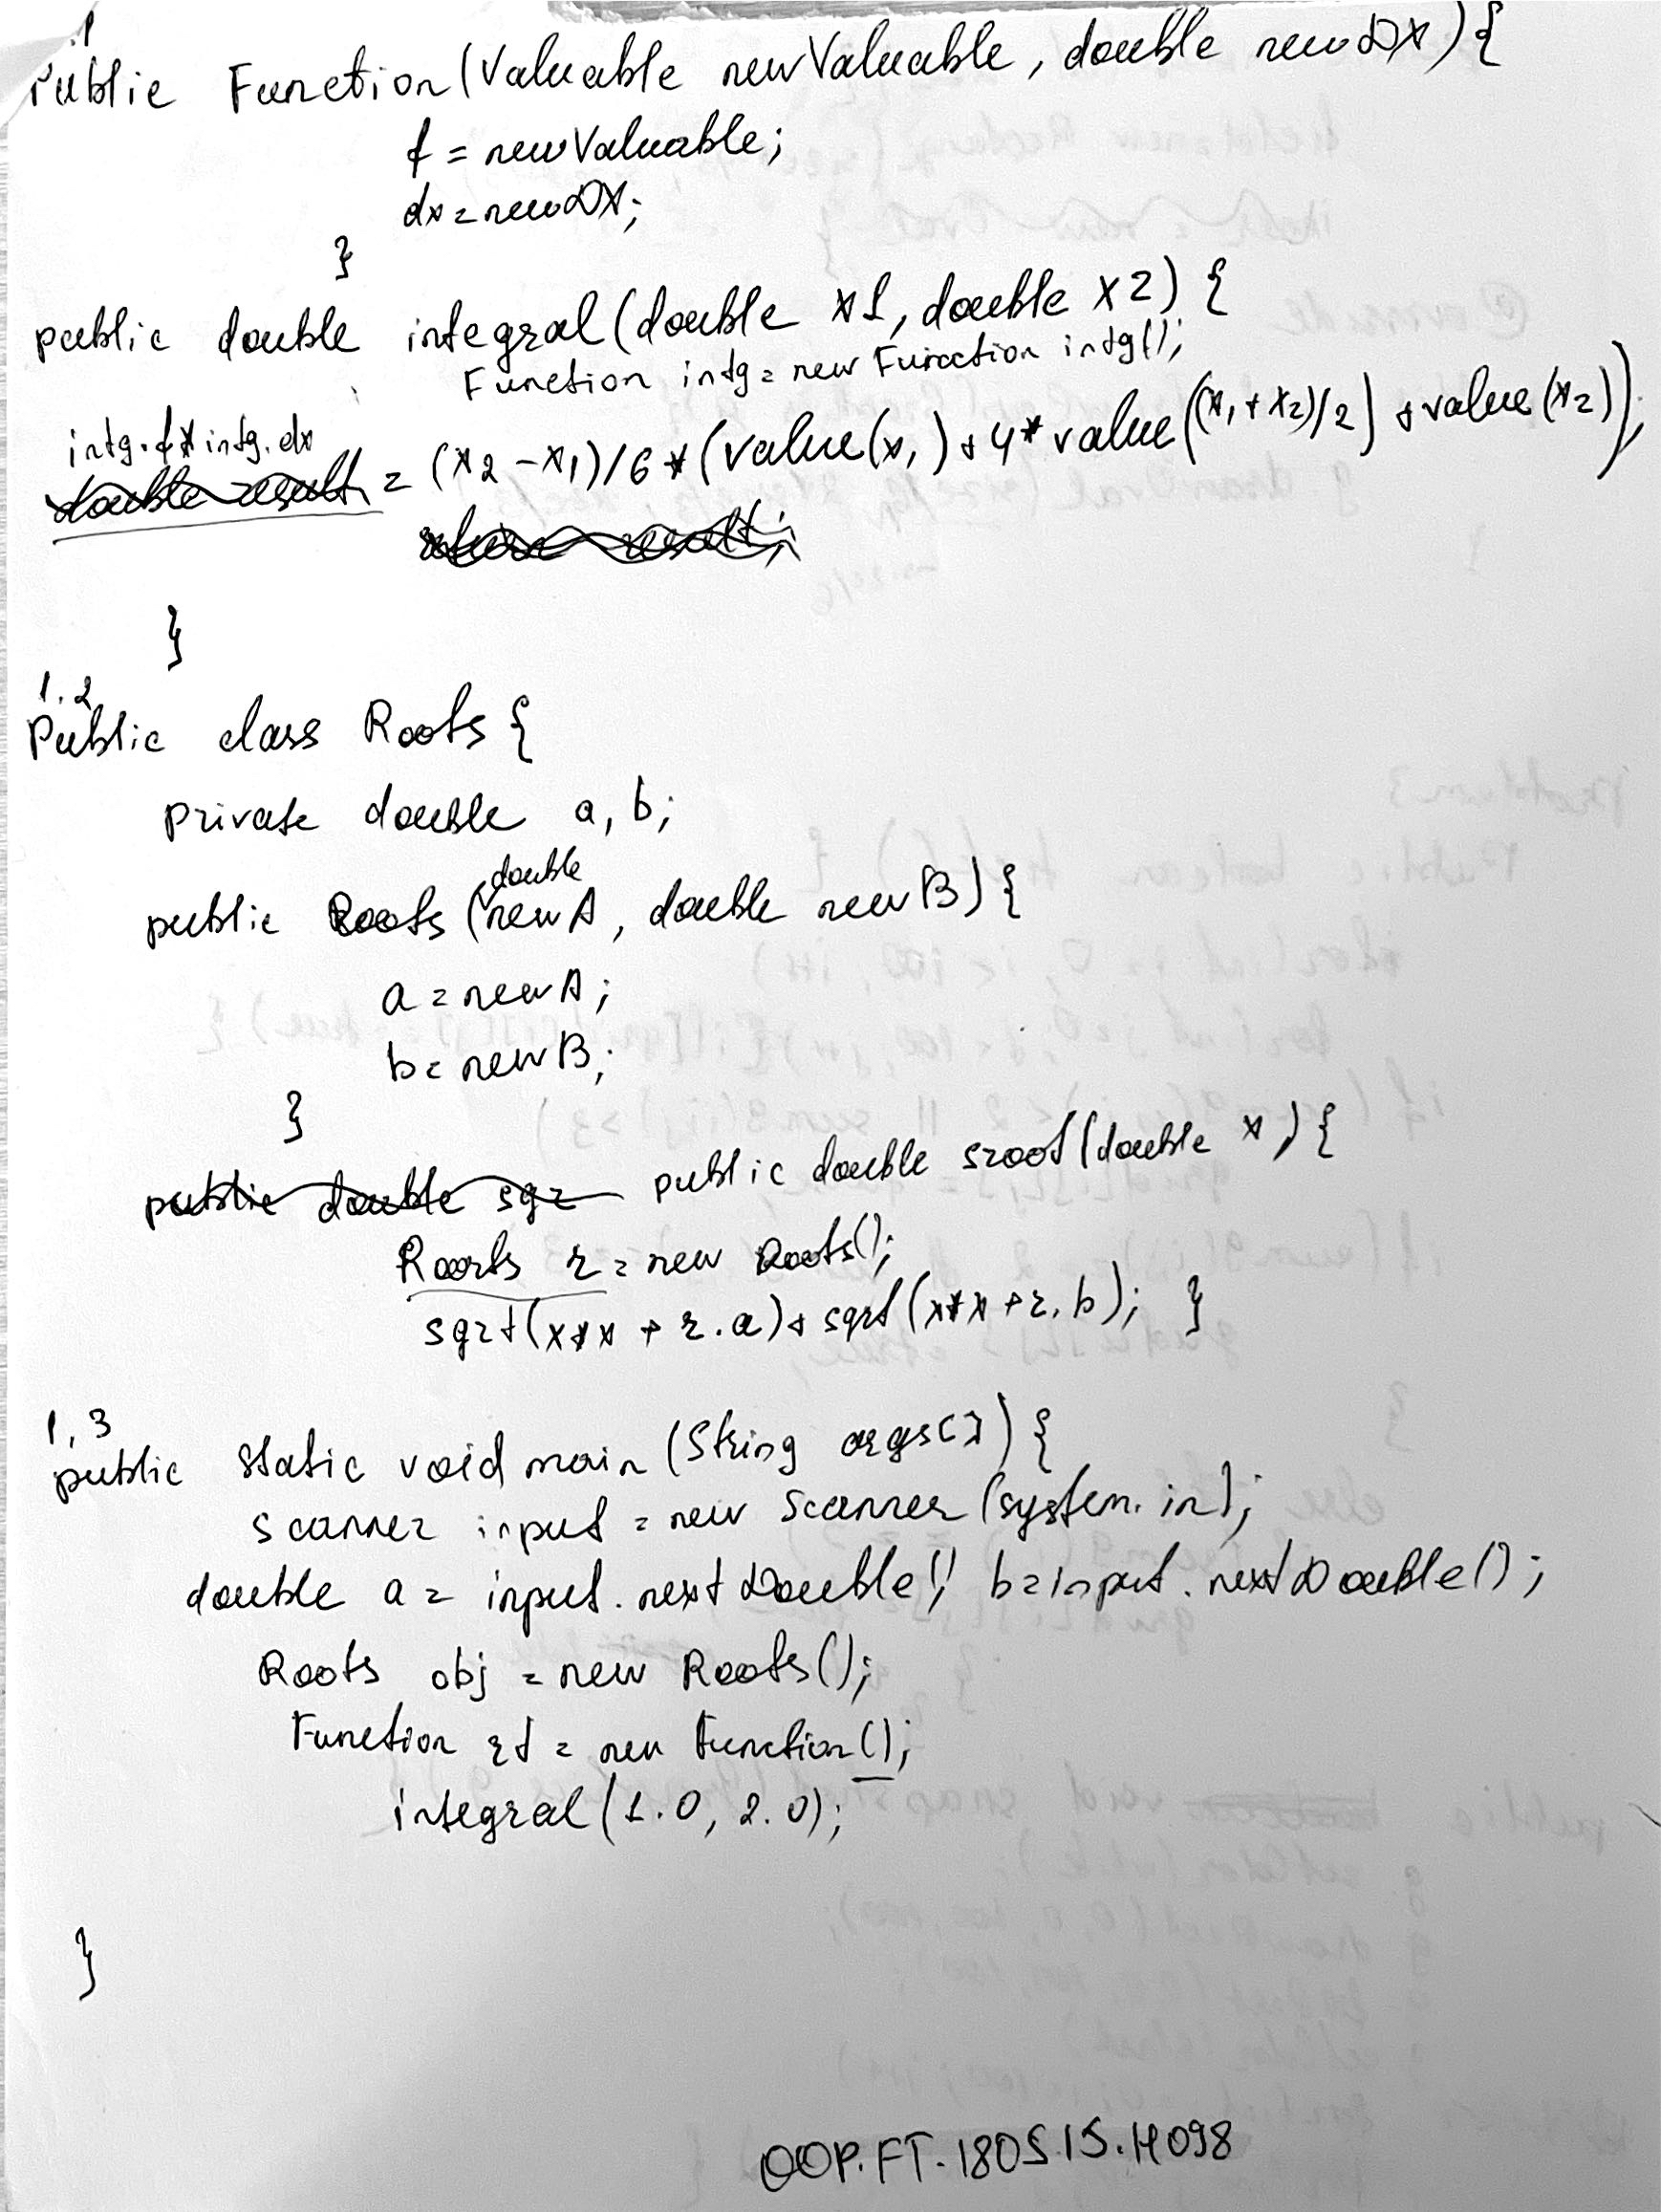 .1
Public Function(Valuable newValuable, double newDX){
f = newValuable;
dx=newDX;
}
public double integral(double x1, double x2) {
Function intg= new Function intg();
intg.f*intg.dx
double result = (x2-x1)/6*(value(x1)+4*value((x1+x2)/2)+value(x2));
return result;
}
1.2
Public class Roots {
private double a, b;
double
public Roots (newA, double newB){
a=newA;
b=newB;
}
public double sqr public double sroot(double x){
Roots r=new Roots();
sqrt(x*x + r.a)+sqrt(x*x+r.b); }
1,3
public static void main(String args[]){
scanner input = new Scanner(system.in);
double a = input.nextDouble(), b=input.nextDouble();
Roots obj = new Roots();
Function rt = new Function();
integral(1.0, 2.0);
}
OOP.FT.1805.15.H098